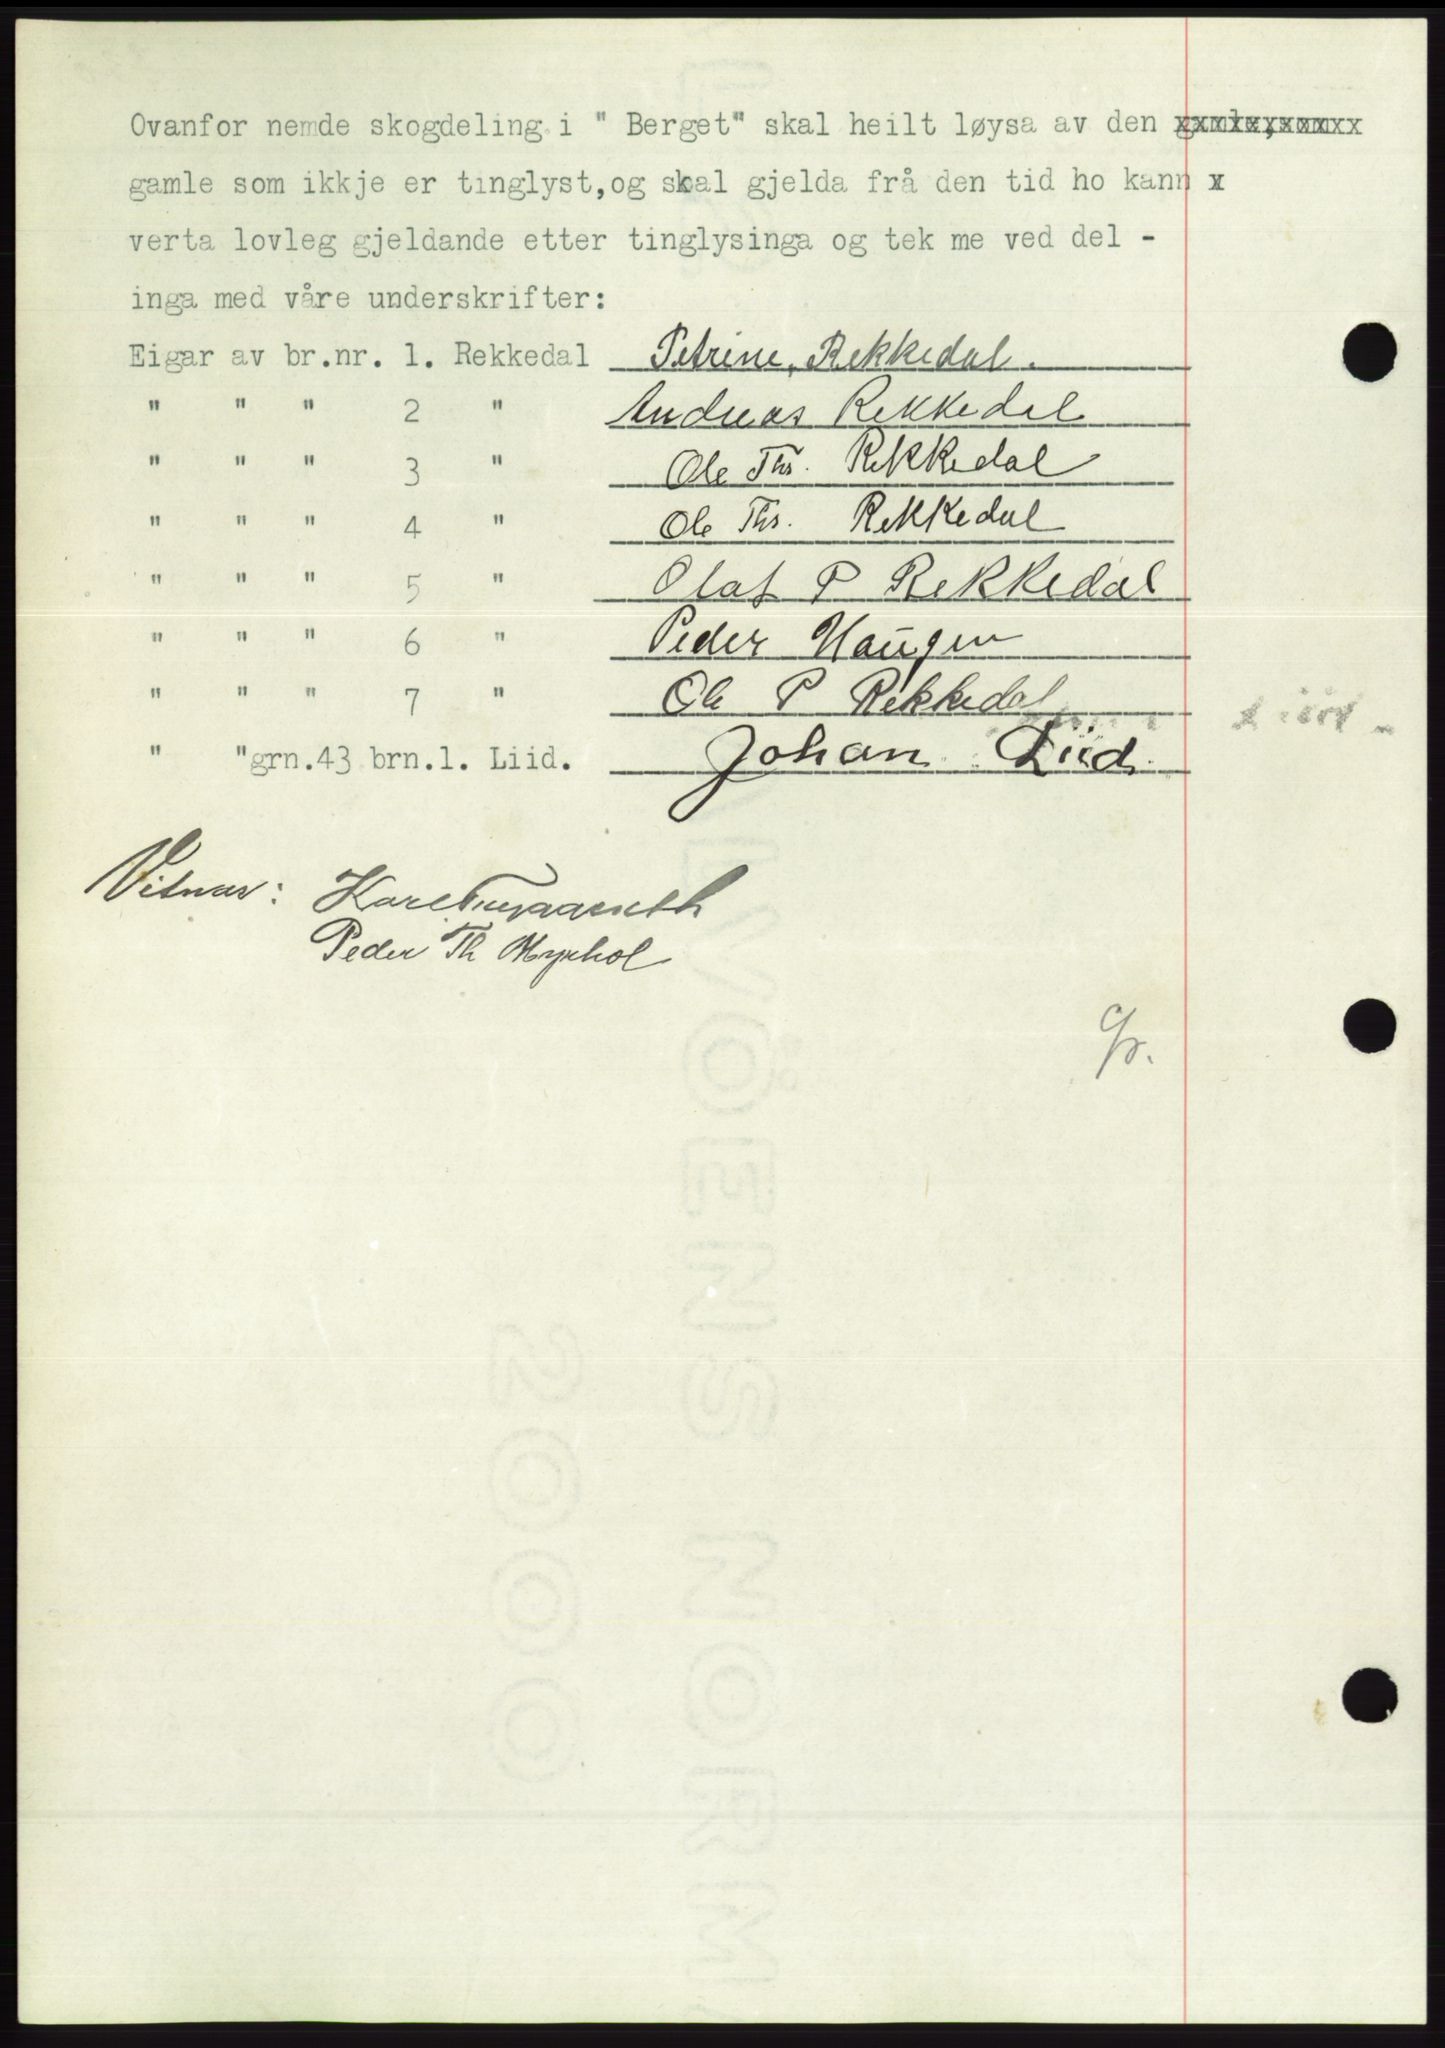 Ovanfor nemde skogdeling i " Berget" skal heilt løysa av den
gamle som ikkje er tinglyst,og skal gjelda frå den tid ho kann x
verta lovleg gjeldande etter tinglysinga og tek me ved del -
inga med våre underskrifter:
Eigar av br.nr. 1. Rekkedal Petrine, Rekkedal.
" " " 2 " Andreas Rekkedal
" " " 3 " Ole Ths. Rekkedal
" " " 4 " Ole Ths. Rekkedal
" " " 5 " Olaf P Rekkedal
" " " 6 " Peder Haugen
" " " 7 " Ole P Rekkedal
" "grn.43 brn.1. Liid. Johan Liid.
Vitnar: Karl
Peder Th Myrhol
ALVØENS NORMAL
2000